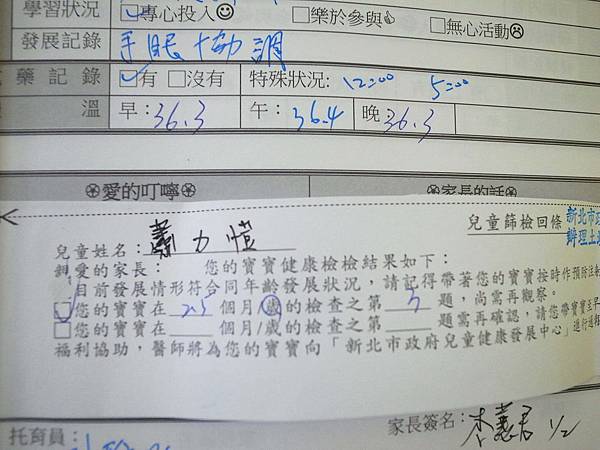 學習狀況 ☑專心投入☺ □樂於參與👍 □無心活動☹
發展記錄 手眼協調
藥記錄 ☑有 □沒有 特殊狀況: 12:00 5:00
溫 早:36.3 午:36.4 晚:36.3
愛的叮嚀 家長的話
兒童篩檢回條 新北市
兒童姓名: 蕭力愷 辦理
親愛的家長: 您的寶寶健康檢檢結果如下:
目前發展情形符合同年齡發展狀況,請記得帶著您的寶寶按時作預防注
☑您的寶寶在2.5個月/歲的檢查之第5題,尚需再觀察。
□您的寶寶在 個月/歲的檢查之第 題需再確認,請您帶寶寶至早
福利協助,醫師將為您的寶寶向「新北市政府兒童健康發展中心」進行通報
家長簽名: 1/2
托育員: